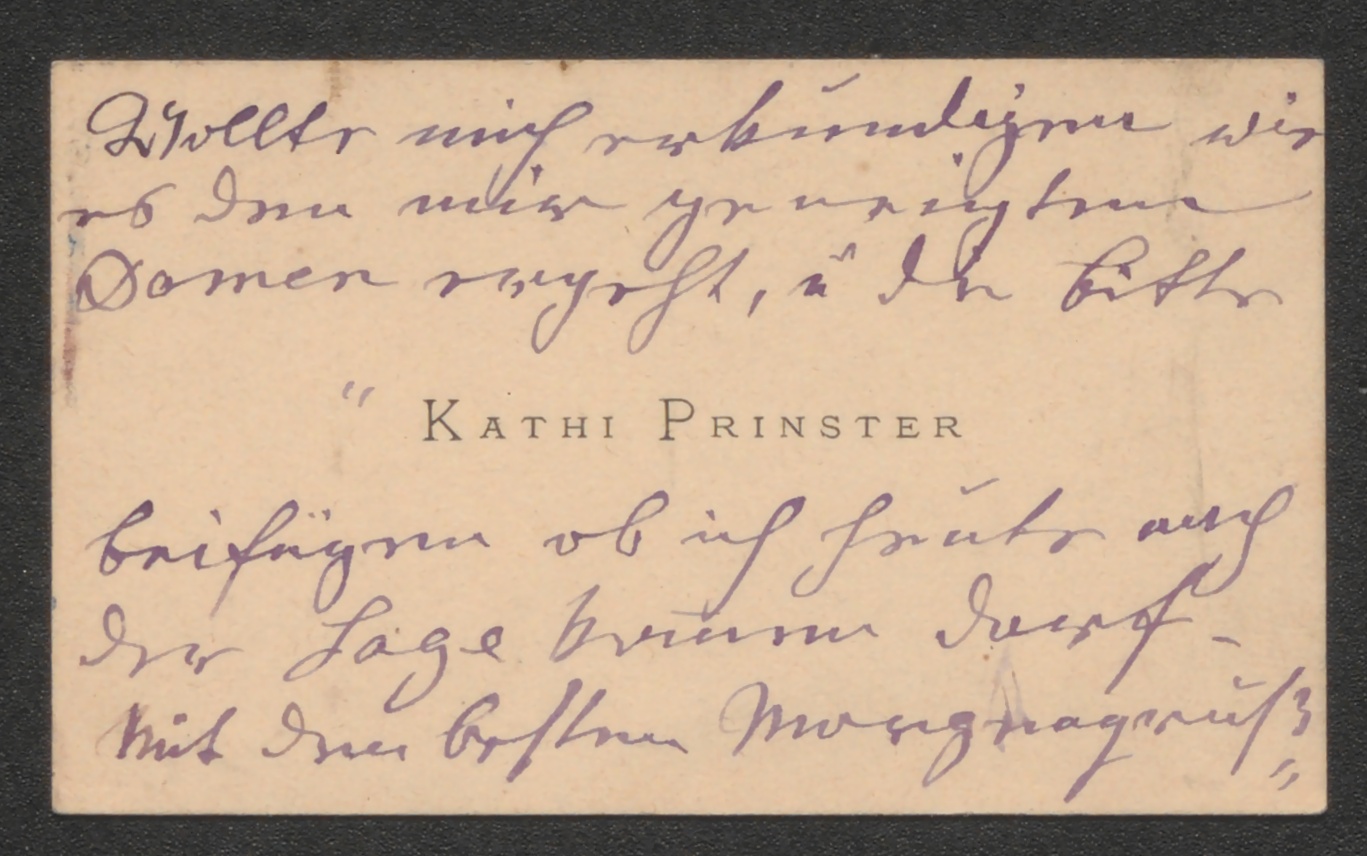 Wollte mich erkundigen wie
es den mir geneigten
Damen ergeht, u die bitte
" KATHI PRINSTER
beifügen ob ich heute nach
der Sage kommen darf -
Mit den besten Morgengruß
"